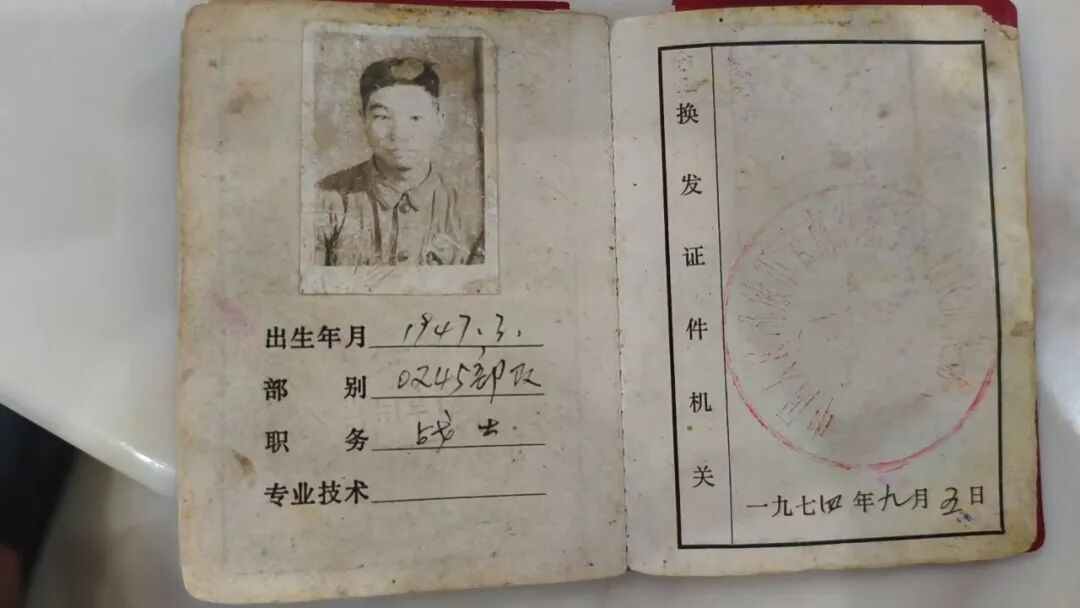 出生年月 1947.3.
部别 0245部队
职务 战士
专业技术
换发证件机关
一九七四年九月五日